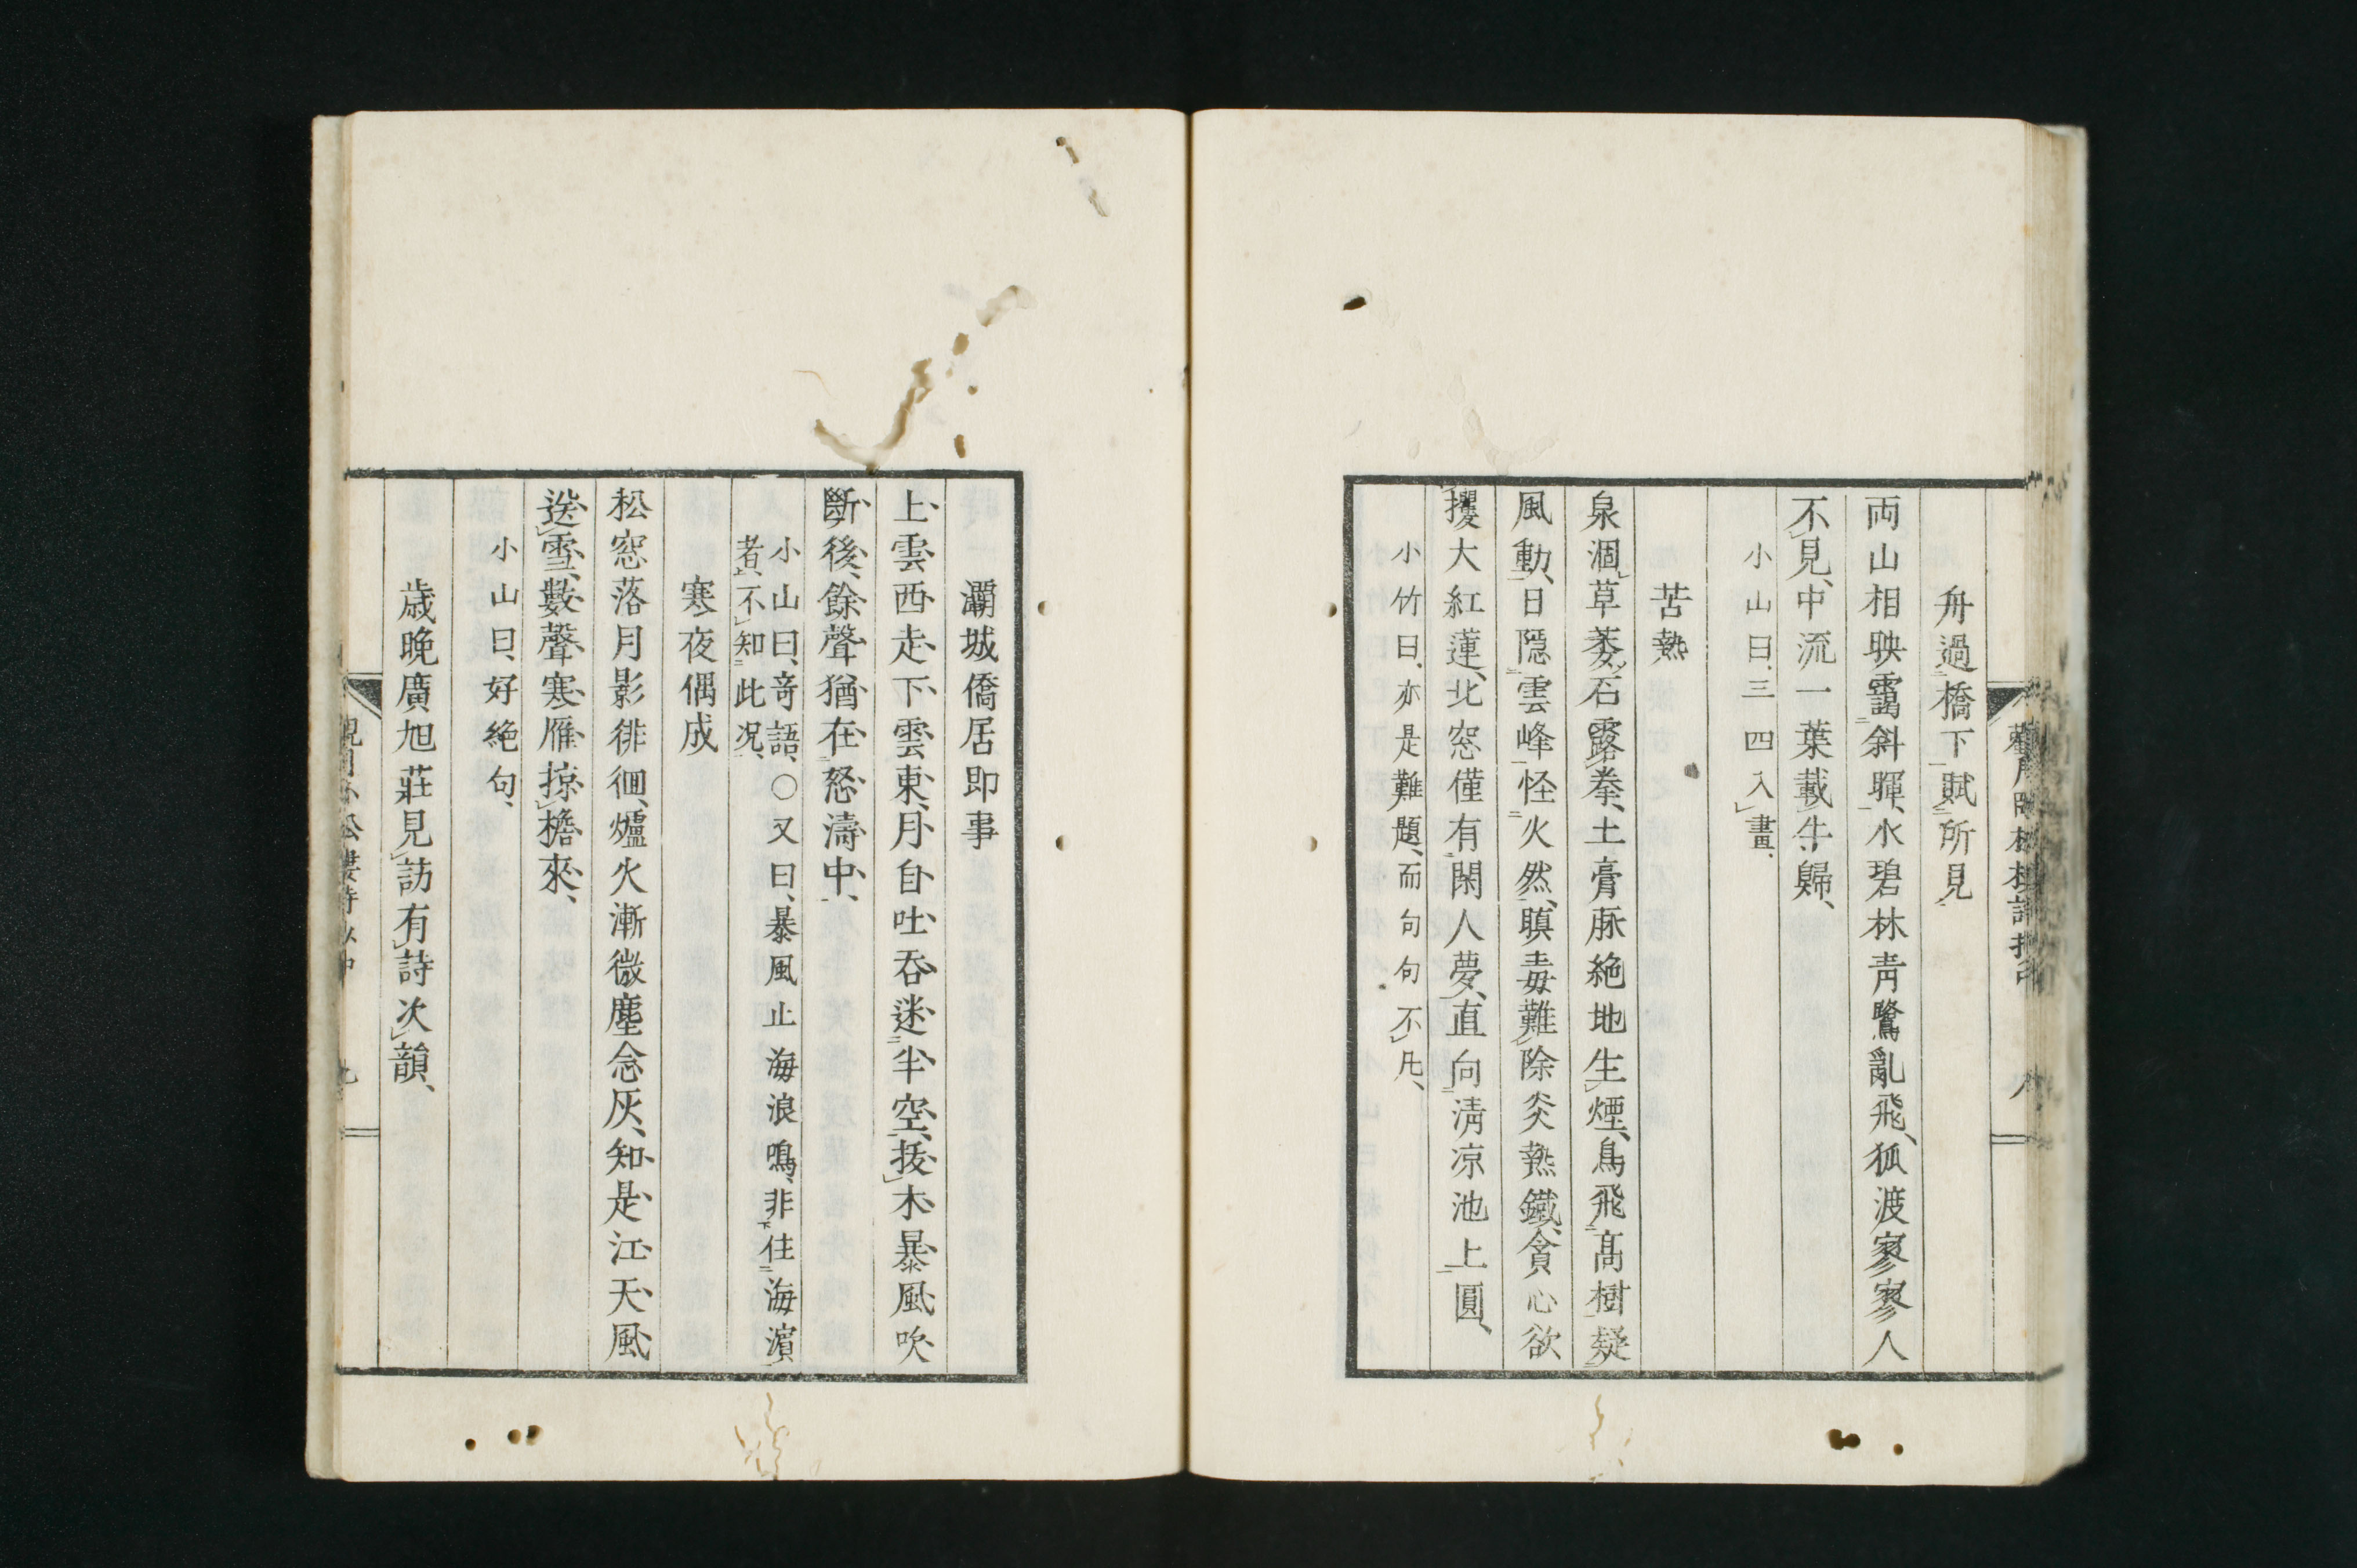 舟過橋下賦所見
両山相映靄斜暉、水碧林青鷺亂飛、狐渡寥寥人
不見、中流一葉載牛歸、
小山曰、三四入畫、
苦熱
泉涸草萎石露拳、土膏脉絶地生煙、鳥飛高樹疑
風動、日隱雲峰怪火然、瞋毒難除炎熱鐵、貪心欲
攫大紅蓮、北窓僅有閑人夢、直向淸凉池上圓、
小竹曰、亦是難題、而句句不凡、
灞城僑居即事
上雲西走下雲東、月自吐吞迷半空、拔木暴風吹
斷後、餘聲猶在怒濤中、
小山曰、奇語、○又曰、暴風止海浪鳴、非住海濵
者、不知此况、
寒夜偶成
松窓落月影徘徊、爐火漸微塵念灰、知是江天風
送雪、數聲寒雁掠檐來、
小山曰、好絶句、
歳晩廣旭莊見訪有詩次韻、
九